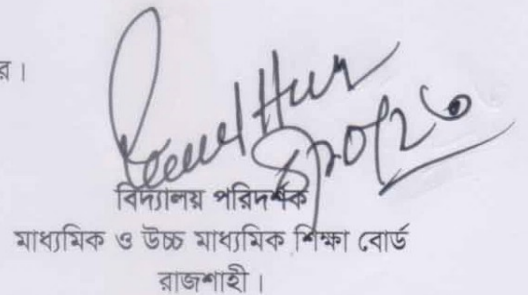 র।
বিদ্যালয় পরিদর্শক
মাধ্যমিক ও উচ্চ মাধ্যমিক শিক্ষা বোর্ড
রাজশাহী।